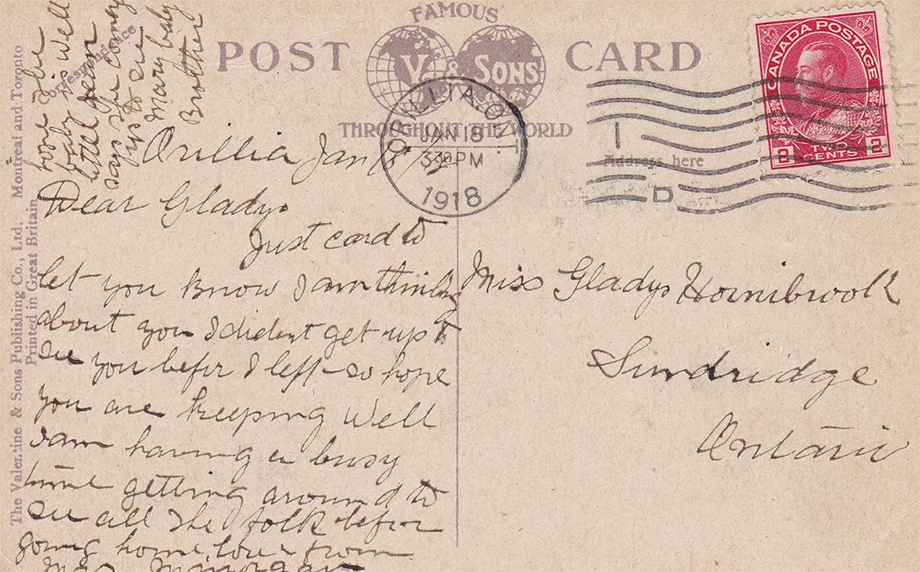 FAMOUS
POST CARD
V. & SONS
THROUGHOUT THE WORLD
Correspondence
Address here
The Valentine & Sons Publishing Co., Ltd. Montreal and Toronto
Printed in Great Britain
ORILLIA O
JAN 18
330 PM
1918
CANADA POSTAGE
2 TWO 2
CENTS
D
Orillia Jan 18
Dear Gladys
Just card to
let you know I am thinking
about you I dident get up to
see you befor I left so hope
you are keeping well
I am having a busy
time getting around to
see all the folk befor
going home, love from
Mrs
baby is well
little
says
up to see
Mary baby
Brother
Miss Gladys Hornibrook
Sundridge
Ontario